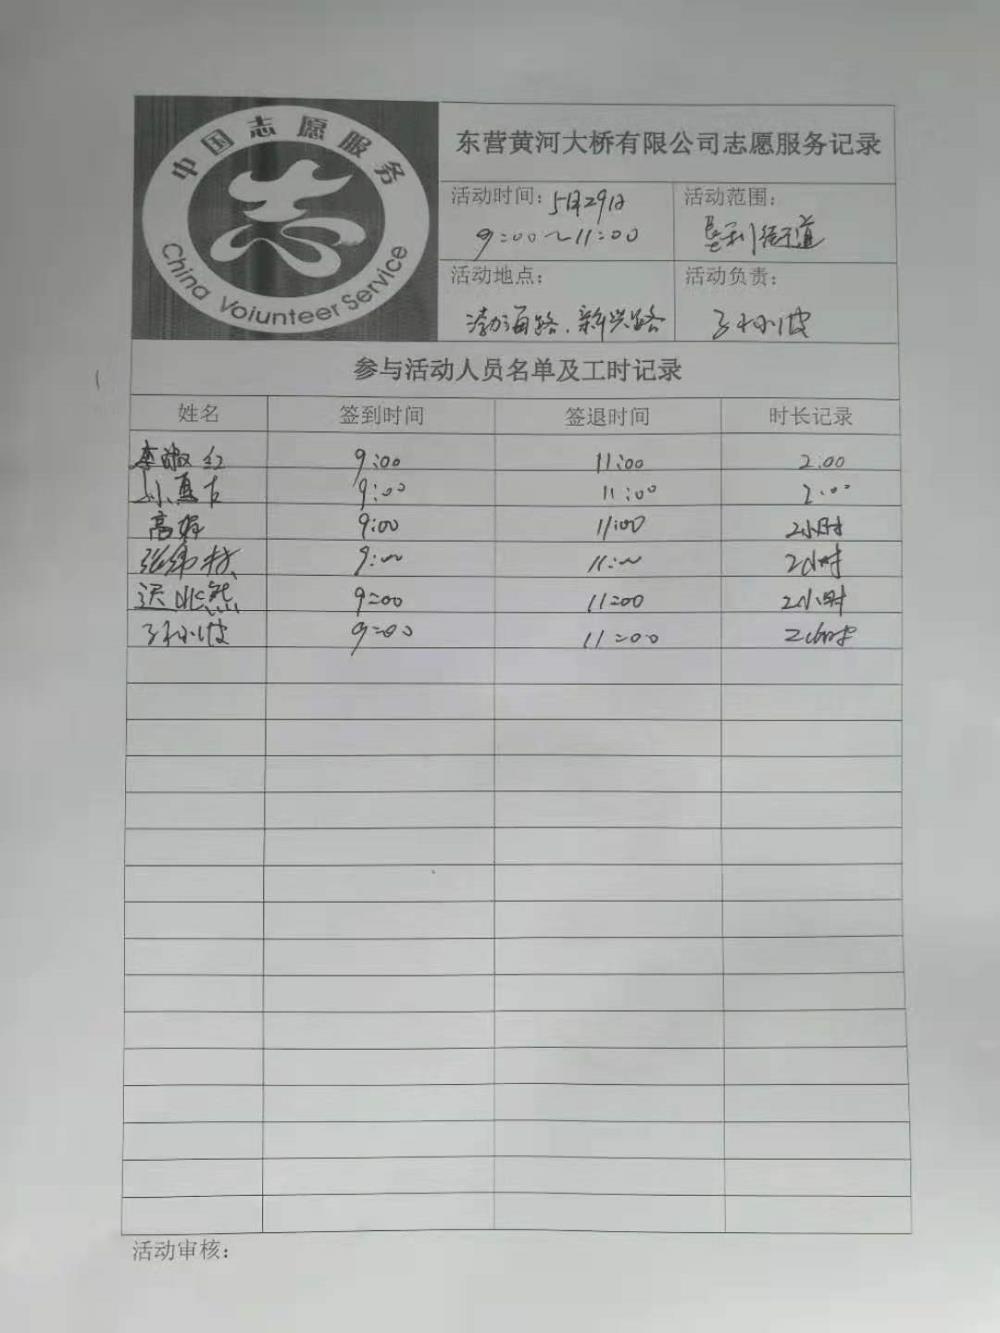 中国志愿服务
China Volunteer Service
东营黄河大桥有限公司志愿服务记录
活动时间：5月29日
9:00~11:00
活动范围：
垦利街道
活动地点：
渤海路、新兴路
活动负责：
参与活动人员名单及工时记录
姓名 签到时间 签退时间 时长记录
李淑红 9:00 11:00 2.00
9:00 11:00 2.00
高娜 9:00 11:00 2小时
9:00 11:00 2小时
迟兆熊 9:00 11:00 2小时
9:00 11:00 2小时
活动审核：